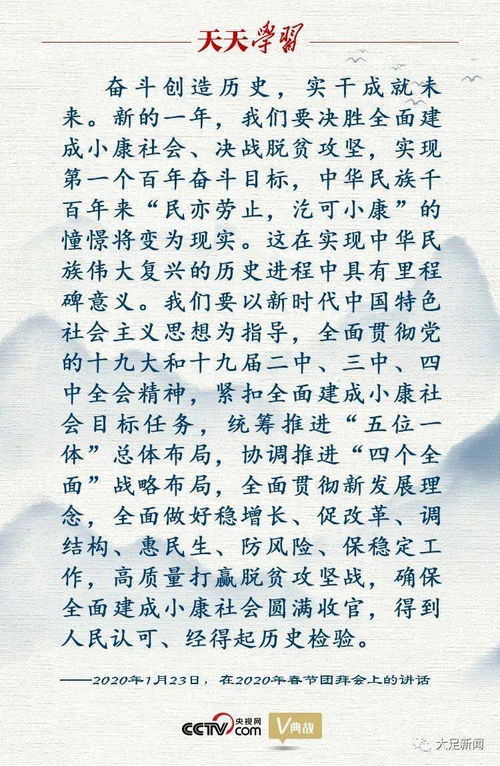 天天学習
奋斗创造历史，实干成就未
来。新的一年，我们要决胜全面建
成小康社会、决战脱贫攻坚，实现
第一个百年奋斗目标，中华民族千
百年来“民亦劳止，汔可小康”的
憧憬将变为现实。这在实现中华民
族伟大复兴的历史进程中具有里程
碑意义。我们要以新时代中国特色
社会主义思想为指导，全面贯彻党
的十九大和十九届二中、三中、四
中全会精神，紧扣全面建成小康社
会目标任务，统筹推进“五位一
体”总体布局，协调推进“四个全
面”战略布局，全面贯彻新发展理
念，全面做好稳增长、促改革、调
结构、惠民生、防风险、保稳定工
作，高质量打赢脱贫攻坚战，确保
全面建成小康社会圆满收官，得到
人民认可、经得起历史检验。
——2020年1月23日，在2020年春节团拜会上的讲话
CCTV.com 央视网 V典故
大足新闻